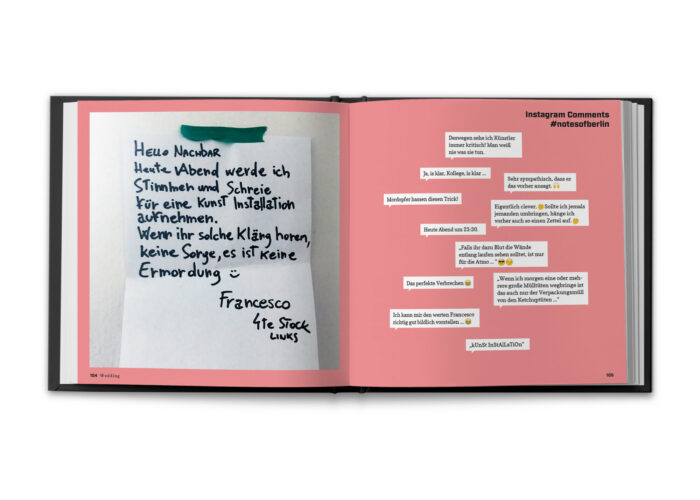 Hello Nachbar
Heute Abend werde ich
Stimmen und Schreie
für eine Kunst Installation
aufnehmen.
Wenn ihr solche Kläng horen,
keine Sorge, es ist keine
Ermordung
Francesco
4te Stock
LINKS
104 Wedding
Instagram Comments
#notesofberlin
Deswegen sehe ich Künstler
immer kritisch! Man weiß
nie was sie tun.
Ja, is klar, Kollege, is klar ...
Sehr sympathisch, dass er
das vorher ansagt. 🙌
Mordopfer hassen diesen Trick!
Eigentlich clever. 😂 Sollte ich jemals
jemanden umbringen, hänge ich
vorher auch so einen Zettel auf.
Heute Abend um 23:30.
„Falls ihr dazu Blut die Wände
entlang laufen sehen solltet, ist nur
für die Atmo ..."
Das perfekte Verbrechen
„Wenn ich morgen eine oder meh-
rere große Mülltüten wegbringe ist
das auch nur der Verpackungsmüll
von den Ketchuptüten ..."
Ich kann mir den werten Francesco
richtig gut bildlich vorstellen ...
„kUnSt InStAlLaTiOn"
105